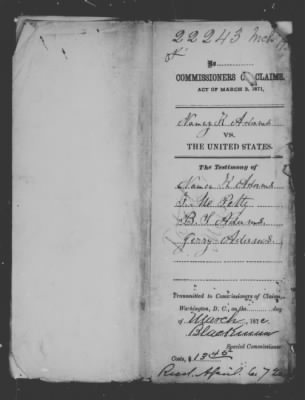 22243
No.
COMMISSIONERS OF CLAIMS.
ACT OF MARCH 3, 1871.
Nancy K Adams
VS.
THE UNITED STATES.
The Testimony of
Nancy K Adams
T. Mc Petty
B. F. Adams
Gerry Adams
Transmitted to Commissioners of Claims,
Washington, D. C., on the day
of March 187
Blackman
Special Commissioner
Costs, $ 1345
Recd. April 6, 72